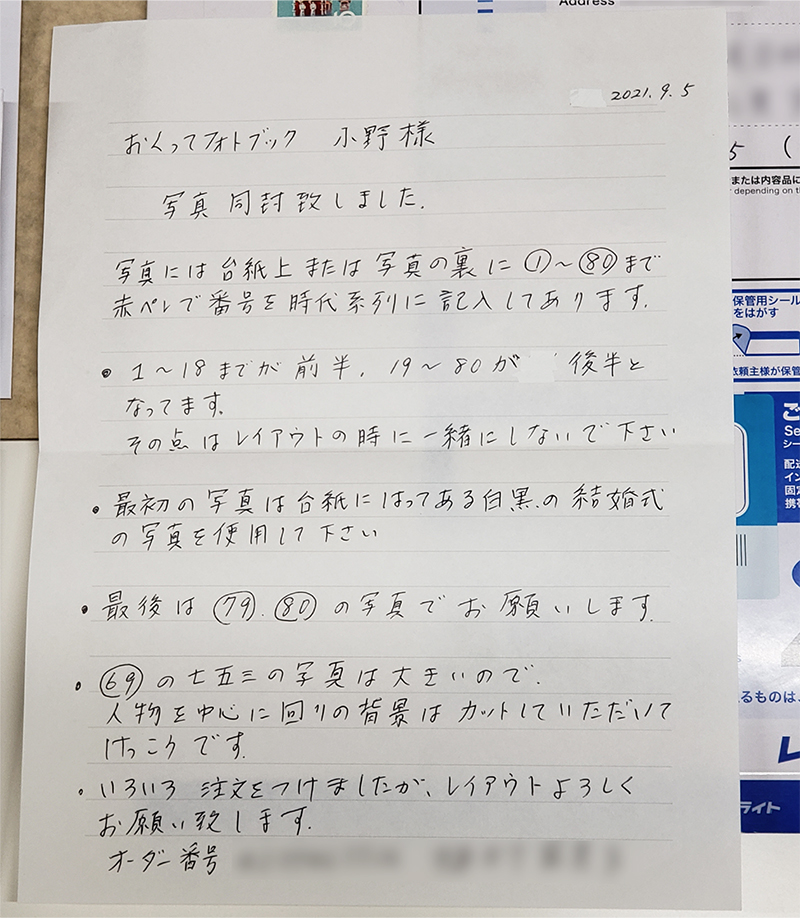 Address
2021.9.5
おくってフォトブック 小野様
写真 同封致しました.
写真には 台紙上 または 写真の裏に ①～⑧⓪まで
赤ペンで番号を時代系列に記入してあります.
・1～18までが 前半. 19～80が 後半と
なってます.
その点はレイアウトの時に一緒にしないで下さい
・最初の写真は台紙にはってある白黒の結婚式
の写真を使用して下さい
・最後は 79.80 の写真で お願いします.
・69の七五三の写真は大きいので.
人物を中心に回りの背景はカットしていただいて
けっこうです.
・いろいろ 注文をつけましたが、レイアウトよろしく
お願い致します.
オーダー番号
5 (
または内容品に
depending on th
保管用シール
をはがす
依頼主様が保管
ご
Se
シー
配送
イン
固定
携帯
るものは、
ライト